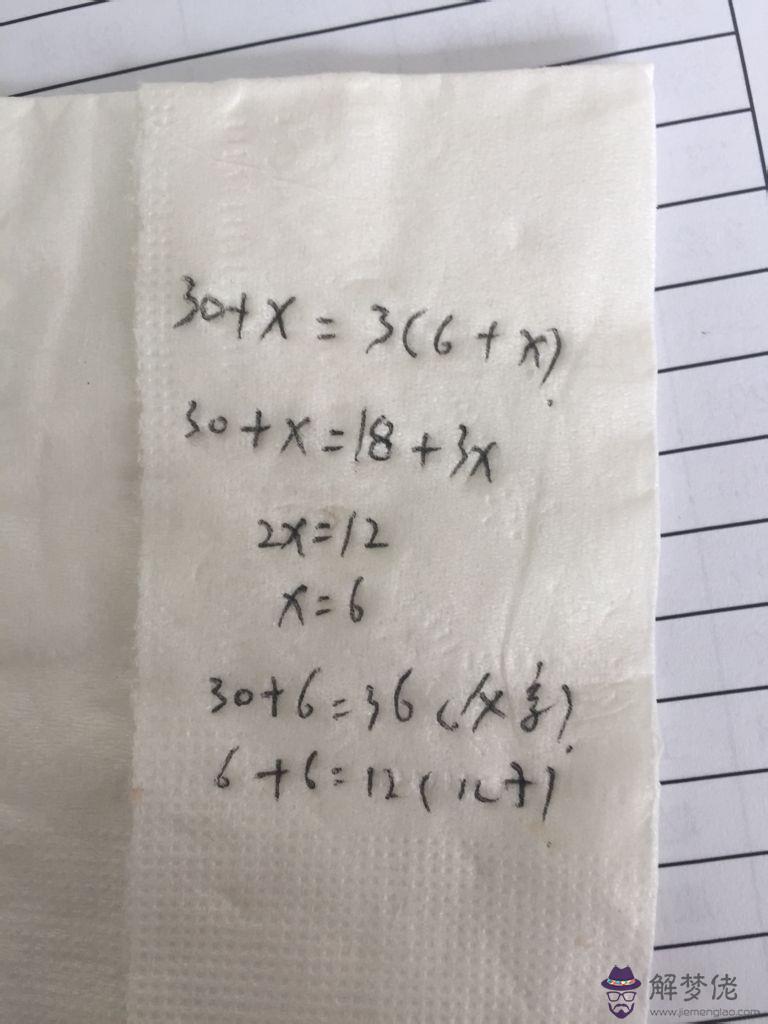 30+x=3(6+x)
30+x=18+3x
2x=12
x=6
30+6=36(父亲)
6+6=12(儿子)
解梦佬
www.jiemenglao.com